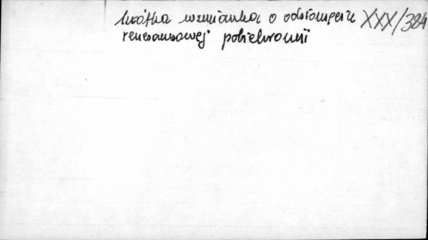 krótka wzmianka o odsłonięciu XXX/384
renesansowej polichromii